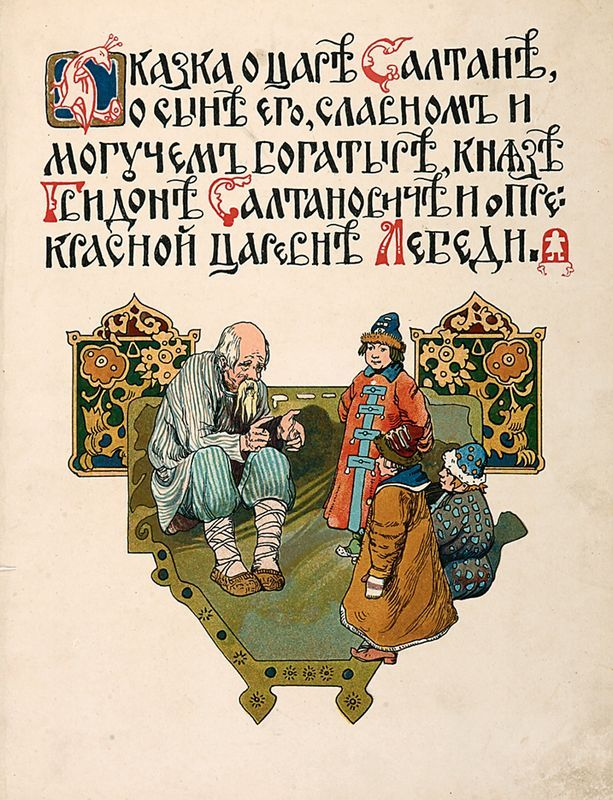 Сказка о царѣ Салтанѣ,
о сынѣ его, славномъ и
могучемъ богатырѣ, князѣ
Гвидонѣ Салтановичѣ и о пре-
красной царевнѣ Лебеди.